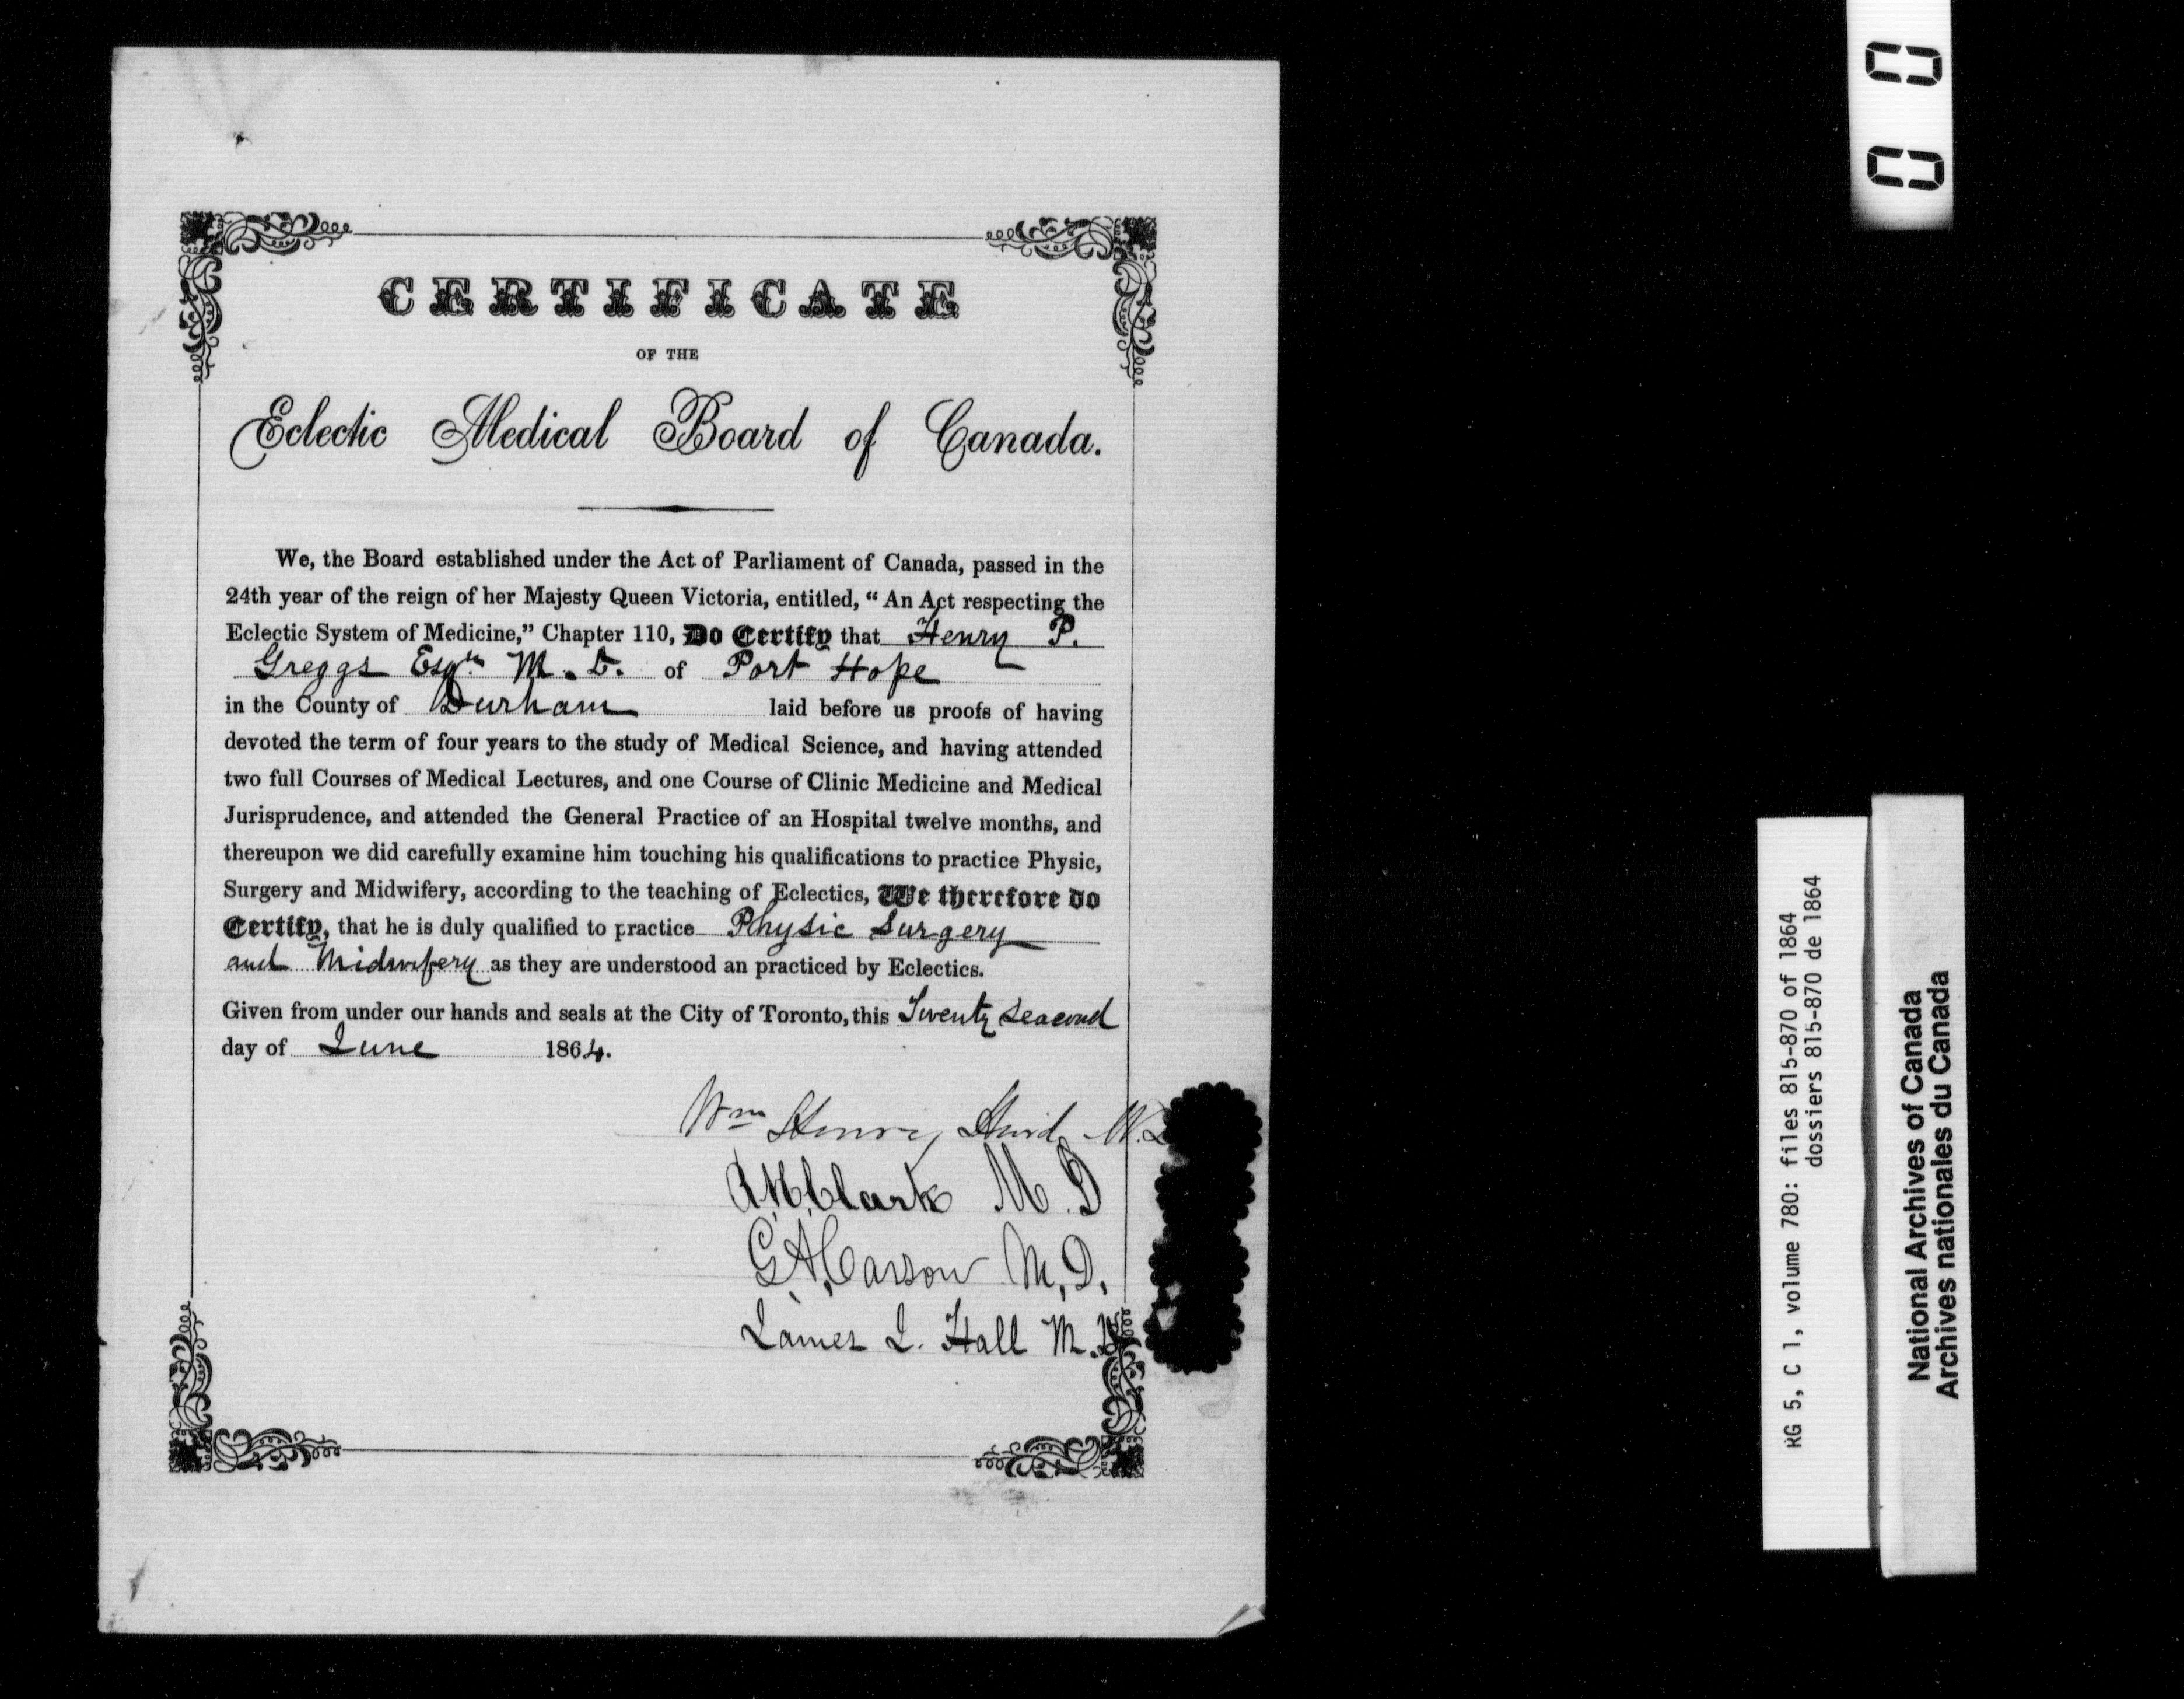 CERTIFICATE
OF THE
Eclectic Medical Board of Canada.
We, the Board established under the Act of Parliament of Canada, passed in the
24th year of the reign of her Majesty Queen Victoria, entitled, “ An Act respecting the
Eclectic System of Medicine,” Chapter 110, Do Certify that Henry P.
Greggs Esqre M. D. of Port Hope
in the County of Durham laid before us proofs of having
devoted the term of four years to the study of Medical Science, and having attended
two full Courses of Medical Lectures, and one Course of Clinic Medicine and Medical
Jurisprudence, and attended the General Practice of an Hospital twelve months, and
thereupon we did carefully examine him touching his qualifications to practice Physic,
Surgery and Midwifery, according to the teaching of Eclectics, We therefore do
Certify, that he is duly qualified to practice Physic Surgery
and Midwifery as they are understood an practiced by Eclectics.
Given from under our hands and seals at the City of Toronto, this Twenty seacond
day of June 1864.
Wm Henry M.D
Clark M.D
G.A. Carson M.D.
James J. Hall M.D
00
RG 5, C 1, volume 780: files 815-870 of 1864
dossiers 815-870 de 1864
National Archives of Canada
Archives nationales du Canada